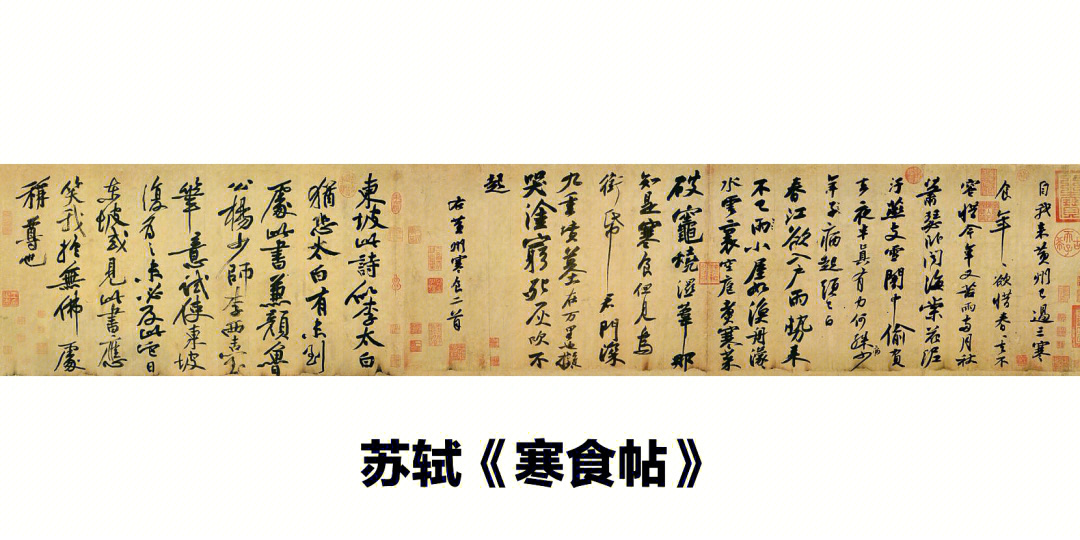 自我来黄州已過三寒
食年〻欲惜春〻去不
容惜今年又苦雨兩月秋
蕭瑟卧聞海棠花泥
汙燕支雪闇中偷負
去夜半真有力何殊少
年子病起頭已白
春江欲入戶雨勢来
不已雨小屋如漁舟濛〻
水雲裏空庖煮寒菜
破竈燒濕葦那
知是寒食但見烏
銜帋君門深
九重墳墓在万里也擬
哭塗窮死灰吹不
起
右黄州寒食二首
東坡此詩似李太白
猶恐太白有未到
處此書兼顏魯
公楊少師李西臺
筆意試使東坡
復為之未必及此它日
東坡或見此書應
笑我於無佛處
稱尊也
苏轼《寒食帖》